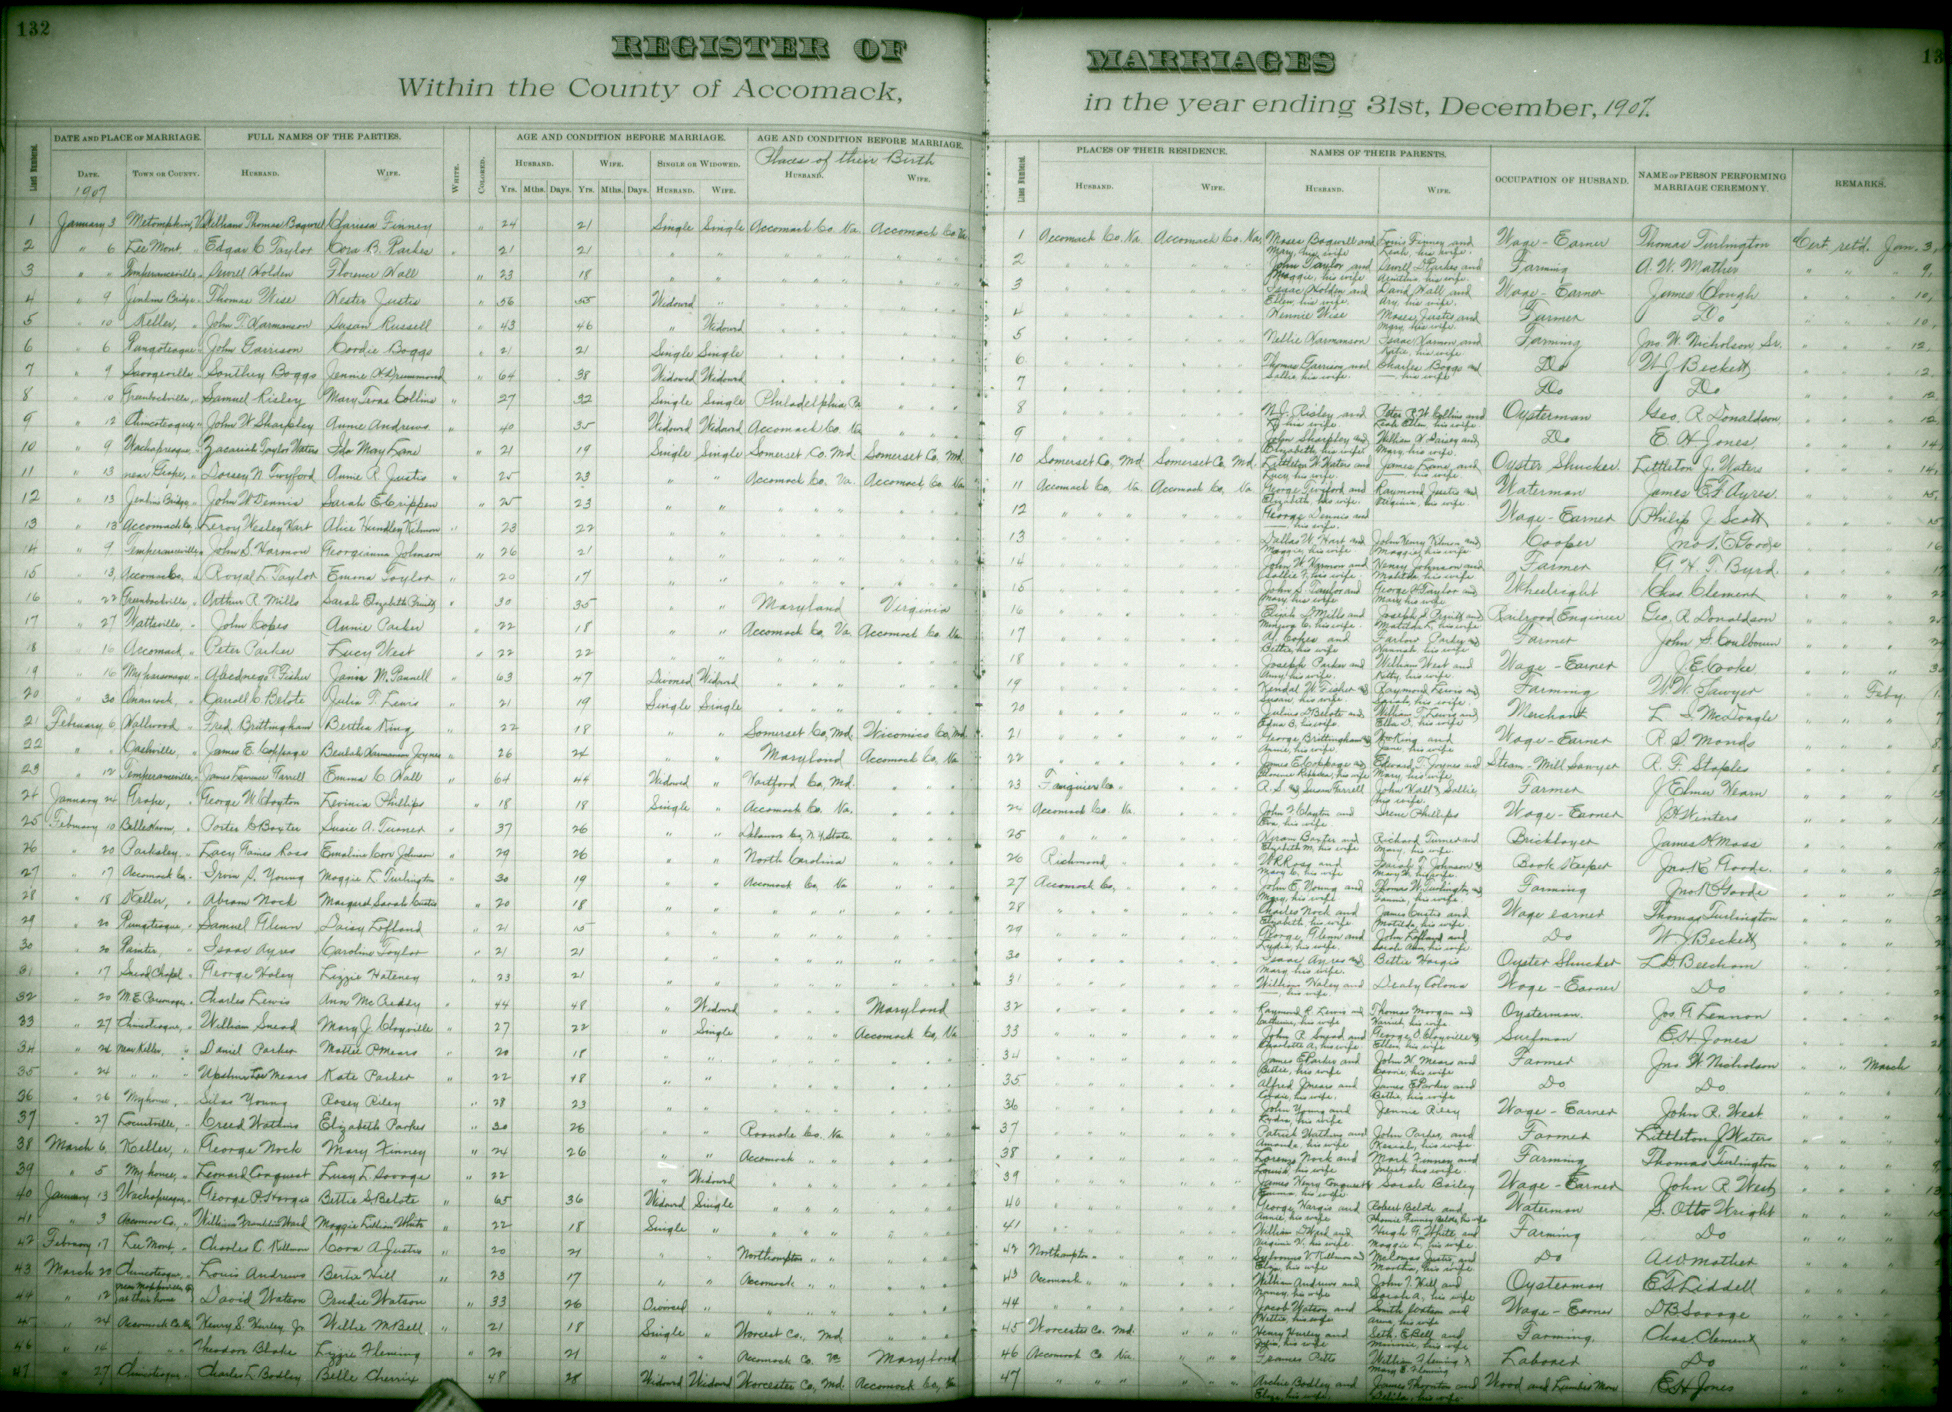 132
REGISTER OF MARRIAGES
Within the County of Accomack, in the year ending 31st, December, 1907.
DATE AND PLACE OF MARRIAGE. FULL NAMES OF THE PARTIES. AGE AND CONDITION BEFORE MARRIAGE. AGE AND CONDITION BEFORE MARRIAGE.
Places of their Birth
Line Numbered. DATE. TOWN OR COUNTY. HUSBAND. WIFE. WHITE. COLORED. HUSBAND. WIFE. SINGLE OR WIDOWED. HUSBAND. WIFE.
1907 Yrs. Mths. Days. Yrs. Mths. Days. HUSBAND. WIFE.
1 January 3 Metompkin, Va William Thomas Bagwell Clarissa Finney " 24 21 Single Single Accomack Co. Va. Accomack Co. Va.
2 " 6 Lee Mont " Edgar C Taylor Cora B. Parkes " 21 21 " " " "
3 " " Temperanceville " Severn Holden Florence Hall " 23 18
4 " 9 Jenkins Bridge " Thomas Wise Hester Justis " 56 55 Widowd "
5 " 10 Keller, John T. Harmanson Susan Russell 43 46 " Widowd
6 " 6 Pungoteague " John Garrison Cordie Boggs " 21 21 Single Single
7 " 9 Savageville " Southey Boggs Jennie Drummond " 64 38 Widowed Widowed
8 " 10 Greenbackville, Samuel Risley Mary Texas Collins " 27 32 Single Single Philadelphia Pa
9 " 12 Chincoteague " John W Sharpley Annie Andrews " 40 35 Widowd Widowd Accomack Co. Va
10 " 9 Wachapreague " Zacariah Taylor Waters Ida May Lane " 21 19 Single Single Somerset Co. Md. Somerset Co. Md.
11 " 13 near Grape, Dorsey N Twyford Annie R Justis " 25 23 " " Accomack Co. Va. Accomack Co. Va.
12 " 13 Jenkins Bridge " John W Dennis Sarah E. Crippen " 25 23
13 " 13 Accomack Co, Leroy Wesley Hart Alice Hundley Kelmon " 23 22
14 " 9 Temperanceville John S Harmon Georgianna Johnson " 26 21
15 " 13, Accomack Co, Royal L Taylor Emma Taylor " 20 17
16 " 22 Greenbackville, Arthur R. Mills Sarah Elizabeth Pruitt " 30 35 " " Maryland Virginia
17 " 27 Wattsville, John Copes Annie Parker " 22 18 " " Accomack Co, Va. Accomack Co, Va.
18 " 16 Accomack " Peter Parker Lucy West " 22 22
19 " 16 My parsonage " Abednego T. Fisher Janie M. Pannell 63 47 Divorced Widowd
20 " 30 Onancock, " Carroll C Belote Julia T. Lewis " 21 19 Single Single
21 February 6 Hallwood " Fred. Brittingham Bertha King " 22 18 " " Somerset Co, Md. Wicomico Co, Md.
22 " " Cashville, " James E. Coppage Beulah Harmanson Joynes 26 24 " " Maryland Accomack Co, Va
23 " 12 Temperanceville, James Lawrence Farrell Emma C. Hall " 64 44 Widowd " Hartford Co, Md.
24 January 24 Grape, " George W Clayton Levinia Phillips " 18 18 Single " Accomack Co. Va.
25 February 10 Belle Haven, " Porter C Baxter Susie A. Turner " 37 26 " " Delaware Co, N.Y. State
26 " 20 Parksley Lacy Gaines Ross Emaline Cora Johnson " 29 26 " " North Carolina
27 " 17 Accomack Co. Irvin S. Young Maggie L Turlington " 30 19 " " Accomack Co, Va
28 " 18 Keller, Abram Nock Margaret Sarah Custis " 20 18
29 " 20 Pungoteague, Samuel Glenn Daisy Lofland " 21 15
30 " 20 Painter, Isaac Ayres Caroline Taylor " 21 21
31 " 17 Snead Chapel, George Haley Lizzie Hateney " 23 21
32 " 20 M.E. Parsonage, Charles Lewis Ann McCreddy " 44 48 " Widowd Maryland
33 " 27 Chincoteague, William Snead Mary J Cloyville " 27 22 " Single Accomack Co, Va
34 " 24 Near Keller, Daniel Parker Mattie P. Mears " 20 18
35 " 24 " " Upshur Lee Mears Kate Parker " 22 18
36 " 26 My house, Silas Young Rosey Riley " 28 23
37 " 27 Locustville, Creed Watkins Elizabeth Parkes " 30 26 Roanoke Co. Va
38 March 6, Keller, " George Nock Mary Finney " 24 26 " " Accomack " "
39 " 5 My house, " Leonard Conquest Lucy L Savage " 22 " Widowd
40 January 13 Wachapreague, George P. Hargis Bettie S. Belote " 65 36 Widowd Single
41 " 3 Accomac Co, William Franklin Ward Maggie Lillian White " 22 18 Single "
42 February 17 Lee Mont, " Charles C. Kellman Cora A Justis " 20 21 Northampton " "
43 March 20 Chincoteague, " Louis Andrews Bertie Hill " 23 17 " " Accomack " "
44 " 12 near Mappsville at their home David Watson Prudie Watson " 33 26 Divorced "
45 " 24 Accomack Co. Va Henry S. Hurley Jr Willie M Bell " 21 18 Single " Worcest Co., Md
46 " 14 " " Theodore Blake Lizzie Fleming " 20 21 " " Accomack Co. Va Maryland
47 " 27 Chincoteague " Charles L Bodley Belle Cherrix 48 28 Widowd Widowd Worcester Co, Md. Accomack Co, Va
13
PLACES OF THEIR RESIDENCE. NAMES OF THEIR PARENTS. OCCUPATION OF HUSBAND. NAME OF PERSON PERFORMING MARRIAGE CEREMONY. REMARKS.
Line Numbered. HUSBAND. WIFE. HUSBAND. WIFE.
1 Accomack Co. Va. Accomack Co. Va. Moses Bagwell and Mary, his wife Louis Finney and Leah, his wife. Wage-Earner Thomas Turlington Cert. ret'd. Jan. 3,
2 John Taylor and Maggie, his wife Severn D Parkes and his wife Farming A. W. Mather " " " 9,
3 Isaac Holden and Ellen, his wife David Hall and Ary, his wife. Wage-Earner James Clough " " " 10,
4 Hennie Wise Moses Justis and Mary, his wife Farmer Do " " " 10,
5 Nellie Harmanson Isaac Harmon and Katie, his wife Farming Jno. W. Nicholson, Sr. " " " 12,
6 Thomas Garrison and Sallie, his wife. Charles Boggs and his wife Do W J Beckett " " " 12,
7 Do Do " " " 12,
8 N. J. Risley and his wife Peter R. W. Collins and Leah Ellen, his wife. Oysterman Geo. R. Donaldson, " " " 12,
9 John Sharpley and Elizabeth, his wife William H Daisey and Mary, his wife. Do E. H Jones, " " " 14,
10 Somerset Co, Md. Somerset Co, Md. Littleton W Waters and Lucy, his wife James Lane, and his wife. Oyster Shucker Littleton J. Waters " " " 14,
11 Accomack Co, Va. Accomack Co, Va. George Twyford and Elizabeth, his wife. Raymond Justis and Virginia, his wife. Waterman James E. T. Ayres.
12 George Dennis and his wife. Wage-Earner Philip J. Scott
13 Dallas W. Hart and Maggie, his wife John Henry Kelmon, and Maggie, his wife Cooper Jno. R. Goode
14 John W Harmon and Sallie F, his wife. Henry Johnson and Matilda his wife Farmer G. H. T. Byrd.
15 John S. Taylor and Mary his wife. George H Taylor and Mary, his wife. Wheelright Chas. Clement
16 Elijah G Mills and his wife. Joseph S Pruitt and Matilda L. his wife Railroad Engineer Geo. R. Donaldson
17 W. Copes and Bettie, his wife Parker and Hannah, his wife Farmer John S. Coulbourn
18 Joseph Parker and Amy, his wife William West and Kitty, his wife Wage-Earner J. E. Cooke
19 Kendal W. Fisher and Susan his wife Raymond Lewis and Sarah, his wife. Farming W. W. Sawyer " " Feby.
20 Julius D Belote and Edna B, his wife. William T Lewis and Ella D., his wife. Merchant L. I. McDougle
21 George Brittingham and Annie, his wife King and Jane, his wife Wage-Earner R. S. Monds
22 James E Coppage and his wife Edward T. Joynes and Mary, his wife. Steam-Mill Sawyer R. F. Staples
23 Fauquier Co R. S. and Susan Farrell John Hall & Sallie, his wife. Farmer J Elmer Hearn
24 Accomack Co. Va. John T. Clayton and his wife Irene Phillips Wage-Earner J. H. Winters
25 Hiram Baxter and Elizabeth M. his wife Richard Turner and Mary, his wife. Bricklayer James H Moss
26 Richmond, W R Ross and Mary C, his wife Isaiah T. Johnson & his wife. Book Keeper Jno. R. Goode.
27 Accomack Co, John E. Young and Mary, his wife Thomas W. Turlington, and Fannie, his wife. Farming Jno. R. Goode
28 Charles Nock and Elizabeth his wife James Custis and Matilda, his wife Wage earner Thomas Turlington
29 George, Glenn and Lydia, his wife. John Lofland and Sarah Ann, his wife Do W J Beckett
30 Isaac Ayres and Mary, his wife Bettie Hargis Oyster Shucker L. D. Beecham
31 William Haley and his wife Wage-Earner Do
32 Raymond R Lewis and Catherine, his wife. Thomas Morgan and Harriet, his wife. Oysterman. Jos. G Lennon
33 John R. Snead and Charlotte A, his wife George O Cloyville & Ellen, his wife. Surfman E. H. Jones
34 James E Parker and Bettie, his wife John W. Mears and his wife Farmer Jno. W. Nicholson " " March
35 Alfred Mears and his wife James E Parker and Bettie, his wife Do Do
36 John Young and Lydia, his wife Jennie Riley Wage-Earner John R. West
37 Patrick Watkins and Amanda, his wife John Parkes, and his wife Farmer Littleton J Waters
38 Lorenzo Nock and Louisa, his wife Mark Finney and Juliet, his wife Farming Thomas Turlington
39 James Henry Conquest & Emma, his wife Sarah Bailey Wage-Earner John R West
40 George Hargis and Annie, his wife Robert Belote and his wife Waterman S. Otto Wright
41 William D Ward and Virginia V. his wife Hugh G. White, and Maggie L., his wife. Farming Do
42 Northampton " Sylvanus V. Kellman and Eliza, his wife Justis and Martha, his wife Do A W Mather
43 Accomack " William Andrews and Nancy, his wife John T. Hill and Sarah A, his wife Oysterman E. S. Liddell
44 Jacob Watson and Mettie, his wife Smith Watson and his wife Wage-Earner D B Savage
45 Worcester Co. Md. Henry Hurley and his wife Seth. E Bell and Minnie, his wife Farming. Chas. Clement
46 Accomack Co Va. Frances Pitts William Fleming & Mary E Fleming Laborer Do
47 Archie Bodley and Eliza, his wife. James Thornton and Delila, his wife Wood and Lumber Man E H Jones